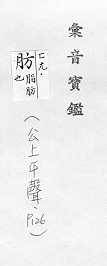 彙音寶鑑
一九.
肪 脂肪
也
(公上平聲、P126)